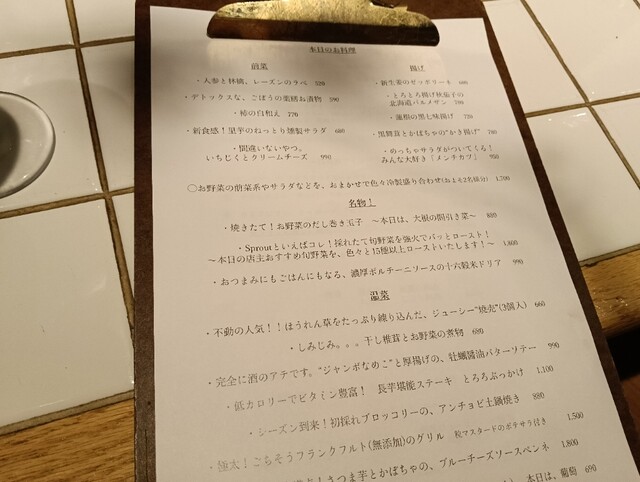 本日のお料理
前菜
・人参と林檎、レーズンのラペ 520
・デトックスな、ごぼうの薬膳お漬物 590
・柿の白和え 770
・新食感！里芋のねっとり燻製サラダ 680
・間違いないやつ。
いちじくとクリームチーズ 990
揚げ
・新生姜のゼッポリーネ 680
・とろとろ揚げ秋茄子の
北海道パルメザン 780
・蓮根の黒七味揚げ
・黒舞茸とかぼちゃの"かき揚げ" 780
・のっちゃサラダがついてくる！
みんな大好き「メンチカツ」 950
〇お野菜の前菜系やサラダなどを、おまかせで色々冷製盛り合わせ(およそ2名様分) 1,700
名物！
・焼きたて！お野菜のだし巻き玉子 ～本日は、大根の間引き菜～ 880
・Sproutといえばコレ！採れたて旬野菜を強火でバッとロースト！
～本日の店主おすすめ旬野菜を、色々と15種以上ローストいたします！～ 1,800
・おつまみにもごはんにもなる、濃厚ポルチーニソースの十六穀米ドリア 990
温菜
・不動の人気！！ほうれん草をたっぷり練り込んだ、ジューシー"焼売"(3個入) 660
・しみじみ。。。干し椎茸とお野菜の煮物 680
・完全に酒のアテです。"ジャンボなめこ"と厚揚げの、牡蠣醤油バターソテー 990
・低カロリーでビタミン豊富！ 長芋堪能ステーキ とろろぶっかけ 1,100
・シーズン到来！初採れブロッコリーの、アンチョビ土鍋焼き 880
・極太！ごちそうフランクフルト(無添加)のグリル 粒マスタードのポテサラ付き 1,500
さつま芋とかぼちゃの、ブルーチーズソースペンネ 1,800
本日は、葡萄 690